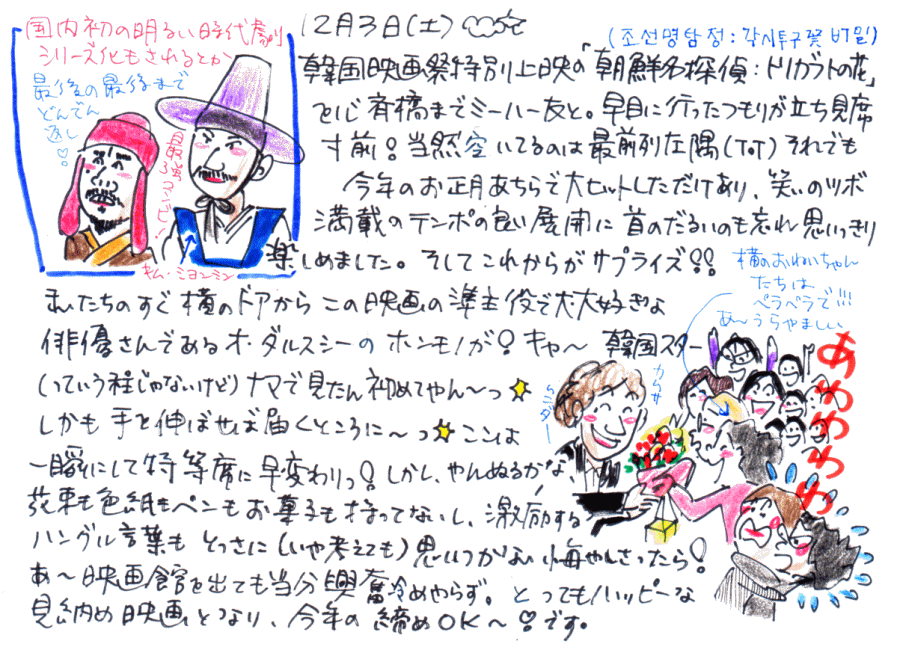 国内初の明るい時代劇
シリーズ化もされるとか
最後の最後まで
どんでん
返し
最強コンビ!
キム・ミョンミン
12月3日(土)
(조선명탐정:각시투구꽃 비밀)
韓国映画祭特別上映の「朝鮮名探偵:トリカブトの花」
を心斎橋までミーハー友と。早目に行ったつもりが立ち見席
寸前!当然空いてるのは最前列左隅(ToT)それでも
今年のお正月あちらで大ヒットしただけあり、笑いのツボ
満載のテンポの良い展開に首のだるいのも忘れ思いっきり
楽しめました。そしてこれからがサプライズ!!
横のおねいちゃん
たちは
ペラペラで!!!
あ〜うらやましい
私たちのすぐ横のドアからこの映画の準主役で大大好きな
俳優さんであるオ・ダルスシーのホンモノが!キャ〜韓国スター
(っていう程じゃないけど)ナマで見たん初めてやん〜っ
しかも手を伸ばせば届くところに〜っ ここは
一瞬にして特等席に早変わりっ!しかし、やんぬるかな、
花束も色紙もペンもお菓子も持ってないし、激励する
ハングル言葉もとっさに(いや考えても)思いつかない悔やしさったら!
あ〜映画館を出ても当分興奮冷めやらず。とってもハッピーな
見納め映画となり、今年の締めOK〜!です。
あわわわわ